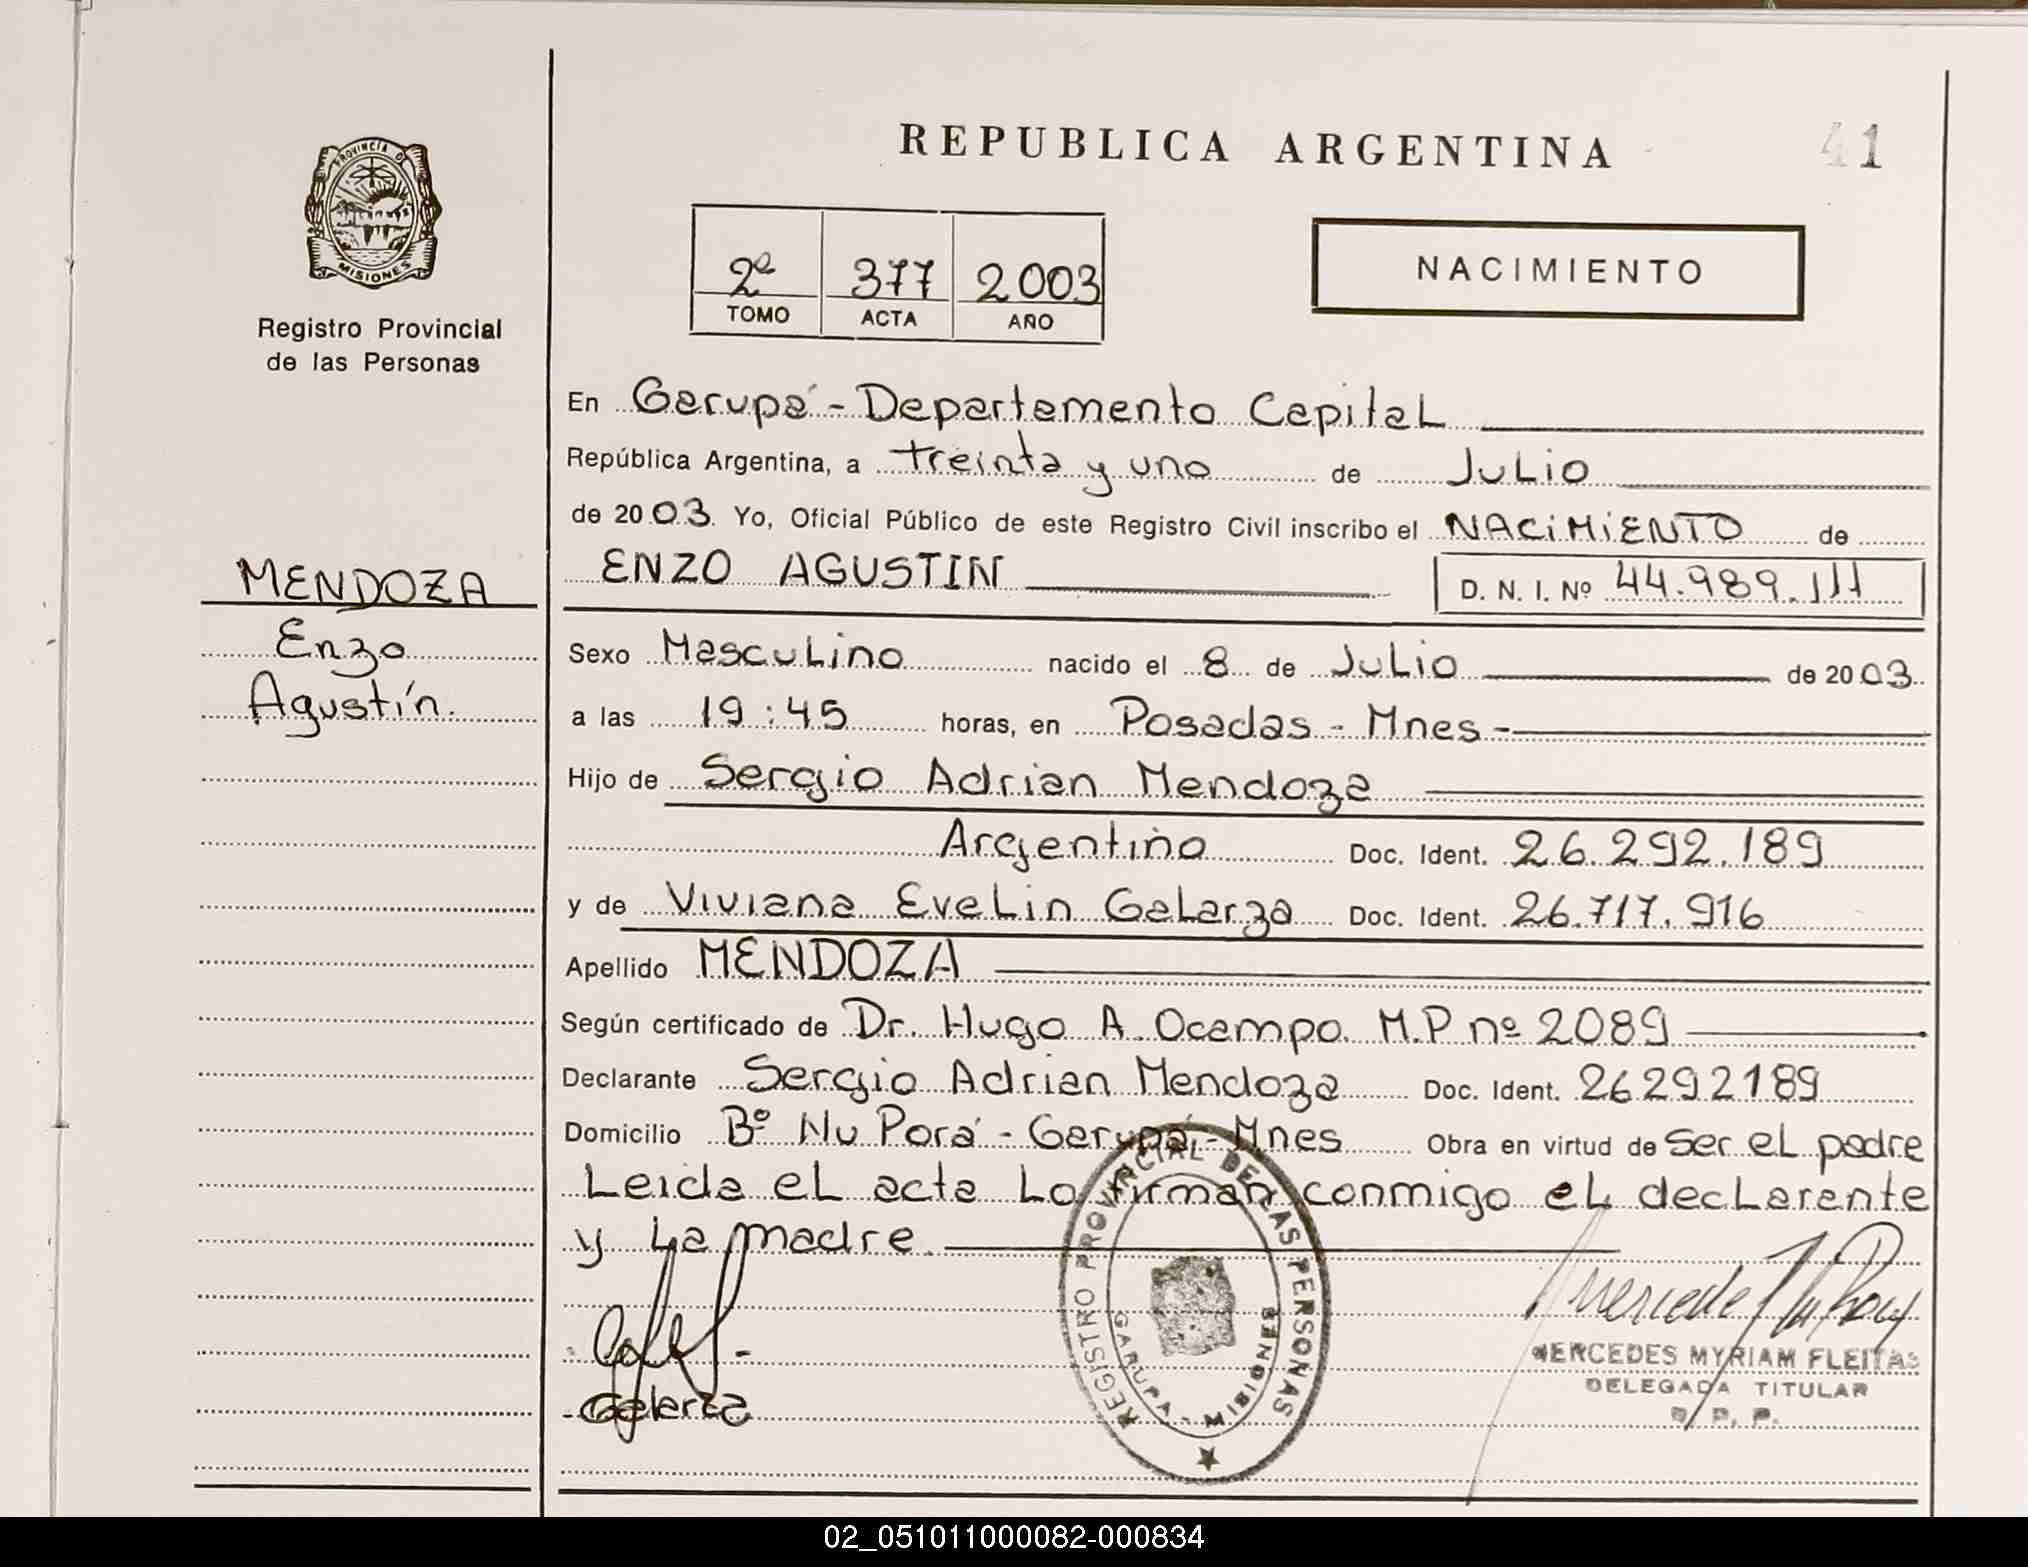 REPUBLICA ARGENTINA
41
PROVINCIA DE
MISIONES
Registro Provincial
de las Personas
2º 377 2003
TOMO ACTA AÑO
NACIMIENTO
En Garupá - Departamento Capital
República Argentina, a treinta y uno de Julio
de 2003 Yo, Oficial Público de este Registro Civil inscribo el NACIMIENTO de
ENZO AGUSTIN D. N. I. Nº 44.989.111
MENDOZA
Enzo
Agustín.
Sexo Masculino nacido el 8 de Julio de 2003
a las 19:45 horas, en Posadas - Mnes -
Hijo de Sergio Adrian Mendoza
Argentino Doc. Ident. 26.292.189
y de Viviana Evelin Galarza Doc. Ident. 26.717.916
Apellido MENDOZA
Según certificado de Dr. Hugo A. Ocampo. M.P nº 2089
Declarante Sergio Adrian Mendoza Doc. Ident. 26292189
Domicilio Bº Ñu Porá - Garupá - Mnes Obra en virtud de ser el padre
Leida el acta lo firman conmigo el declarante
y la madre
REGISTRO PROVINCIAL DE LAS PERSONAS
GARUPA - MISIONES
Galarza
MERCEDES MYRIAM FLEITAS
DELEGADA TITULAR
R. P. P.
02_051011000082-000834